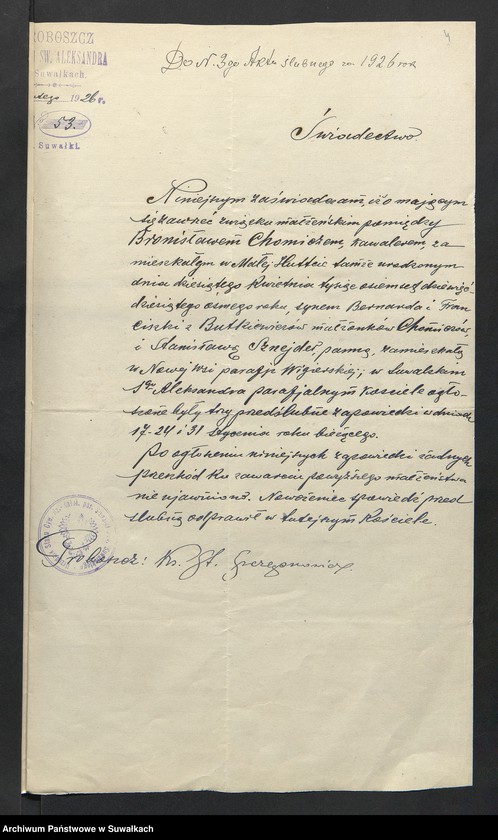 4
ROBOSZCZ
ŚW. ALEKSANDRA
Suwałkach.
tego 1926 r.
53.
Suwałki.
Do N. 3go Aktu ślubnego za 1926 rok
Świadectwo.
Niniejszym zaświadczam, iż o mającym
się zawrzeć związku małżeńskim pomiędzy
Bronisławem Chomiczem, kawalerem, za
mieszkałym w Małej Huttcie tamże urodzonym
dnia dziesiątego Kwietnia tysiąc osiemset dziewięć
dziesiątego ósmego roku, synem Bernarda i Fran
ciszki z Butkiewiczów małżonków Chomiczów
i Stanisławą Sznejder, panną, zamieszkałą
w Nowej Wsi parafji Wigierskiej; w Suwalskim
Śgo Aleksandra parafjalnym Kościele ogło-
szone były trzy przedślubne zapowiedzi w dniach
17-24 i 31 stycznia roku bieżącego.
Po ogłoszeniu niniejszych zapowiedzi żadnych
przeszkód ku zawarciu powyższego małżeństwa
nie ujawniono. Nowożeniec spowiedź przed
ślubną odprawił w tutejszym Kościele.
Proboszcz: Ks. St.
Archiwum Państwowe w Suwałkach